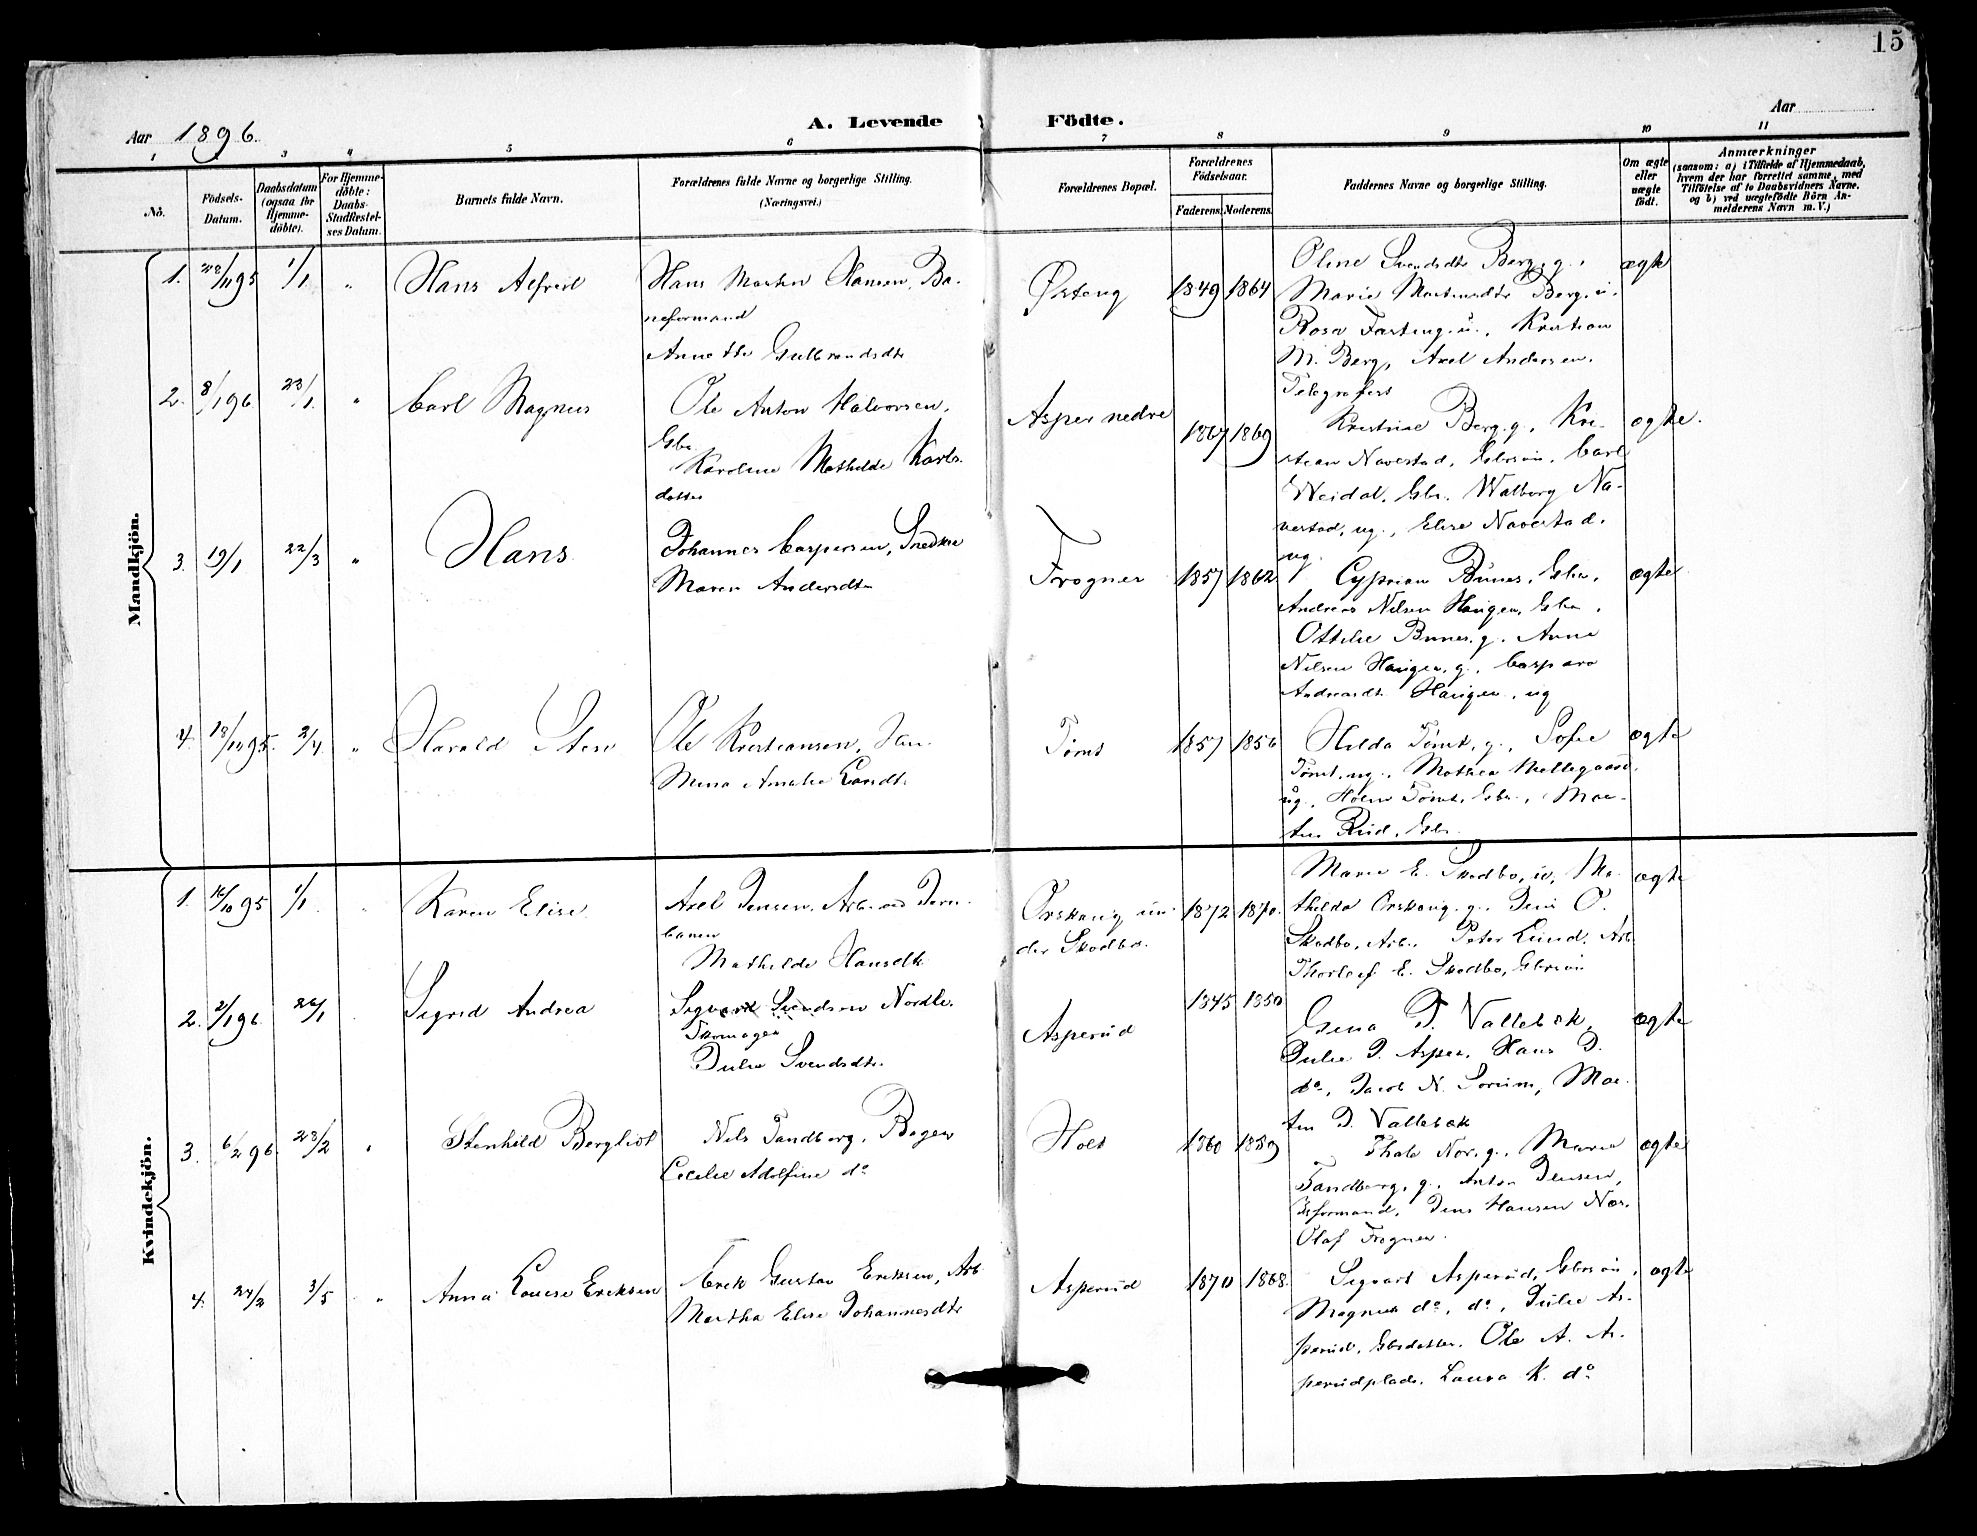 15
Aar 1896.
A. Levende Födte.
Aar
1 3 4 5 6 7 8 9 10 11
No.
Födsels-Datum.
Daabsdatum (ogsaa for Hjemme-döbte).
For Hjemme-döbte: Daabs-Stadfæstel-ses Datum.
Barnets fulde Navn.
Forældrenes fulde Navne og borgerlige Stilling.
(Næringsvei.)
Forældrenes Bopæl.
Forældrenes Födselsaar.
Faderens.
Moderens.
Faddernes Navne og borgerlige Stilling.
Om ægte eller uægte födt.
Anmærkninger
(saasom: a) i Tilfælde af Hjemmedaab, hvem der har forrettet samme, med Tilföielse af to Daabsvidners Navne. og b) ved uægtefödte Börn An-melderens Navn m. V.)
Mandkjön.
1. 28/11 95 1/1 " Hans Alfred
Hans Morten Hansen, Ba-
neformand
Annette Gulbrandsdtr
Østeng 1849 1864
Oline Svendsdtr Berg, g.,
Marie Martinsdtr Berg, u.
Rosa Fosteng u., Kristian
M. Berg, Axel Andersen.
Telegrafist
ægte
2. 8/1 96 23/1 " Carl Magnus
Ole Anton Halvorsen,
Gbr.
Karoline Mathilde Karls-
datter
Asper nedre 1867 1869
Kristine Berg, g., Kri-
stian Naverstad, Gbrsøn, Carl
Weidal, Gbr. Walborg Na-
verstad, ug., Elise Naverstad,
ug.
ægte.
3. 19/1 22/3 " Hans
Johannes Caspersen, Snedker
Maren Andersdtr
Frogner 1857 1862
Cyprian Bunes, Gbr.,
Andreas Nilsen Haugen, Gbr.,
Ottilie Bunes, g., Anne
Nilsen Haugen, g., Caspara
Andreasdtr. Haugen, ug
ægte
4. 18/10 95. 3/4 " Harald Sten
Ole Kristiansen,
Mina Amalie
Tømt 1857 1856
Hilda Tømt, g., Sofie
Tømt, ug., Mathea Mellegaard,
ug., Tømt, Gbr., Mar-
tin Rud, Gbr.
ægte
Kvindekjön.
1. 16/10 95 1/1 Karen Elise
Axel Jensen, Arb. ved Jern-
banen
Mathilde Hansdtr
Orskaug un-
der Skodbo. 1872 1870.
Marie E. Skodbo, u, Ma-
thilda Orskaug, g., Jens O.
Skodbo, Arb., Peter Lund, Arb.
Thorleif E. Skodbo, Gbrsøn
ægte
2. 2/1 96 26/1 Sigrid Andrea
Sigvard Svendsen Nordli.
Skomager
Julie Svendsdtr.
Asperud 1845 1850
Gina J. Vallebæk,
Julie J. Asper, Hans J.
do, Jacob N. Sørum, Mar-
tin J. Vallebæk
ægte
3. 6/2 96 23/2 " Stenhild Bergliot
Nils Sandberg, Bager
Cecilie Adolfine do
Holt 1860 1859
Thale Nor, g., Marie
Sandberg, g., Anton Jensen,
Isformand, Jens Hansen Nor,
Olaf Frogner.
ægte
4. 24/2 3/5 " Anna Louise Eriksen
Erik Gustav Eriksen, Arb.
Martha Elise Johannesdtr
Asperud 1870 1868.
Sigvart Asperud, Gbrsøn,
Magnus do, do, Julie As-
perud, Gbrdatter. Ole A. As-
perudplads. Laura K. do
ægte